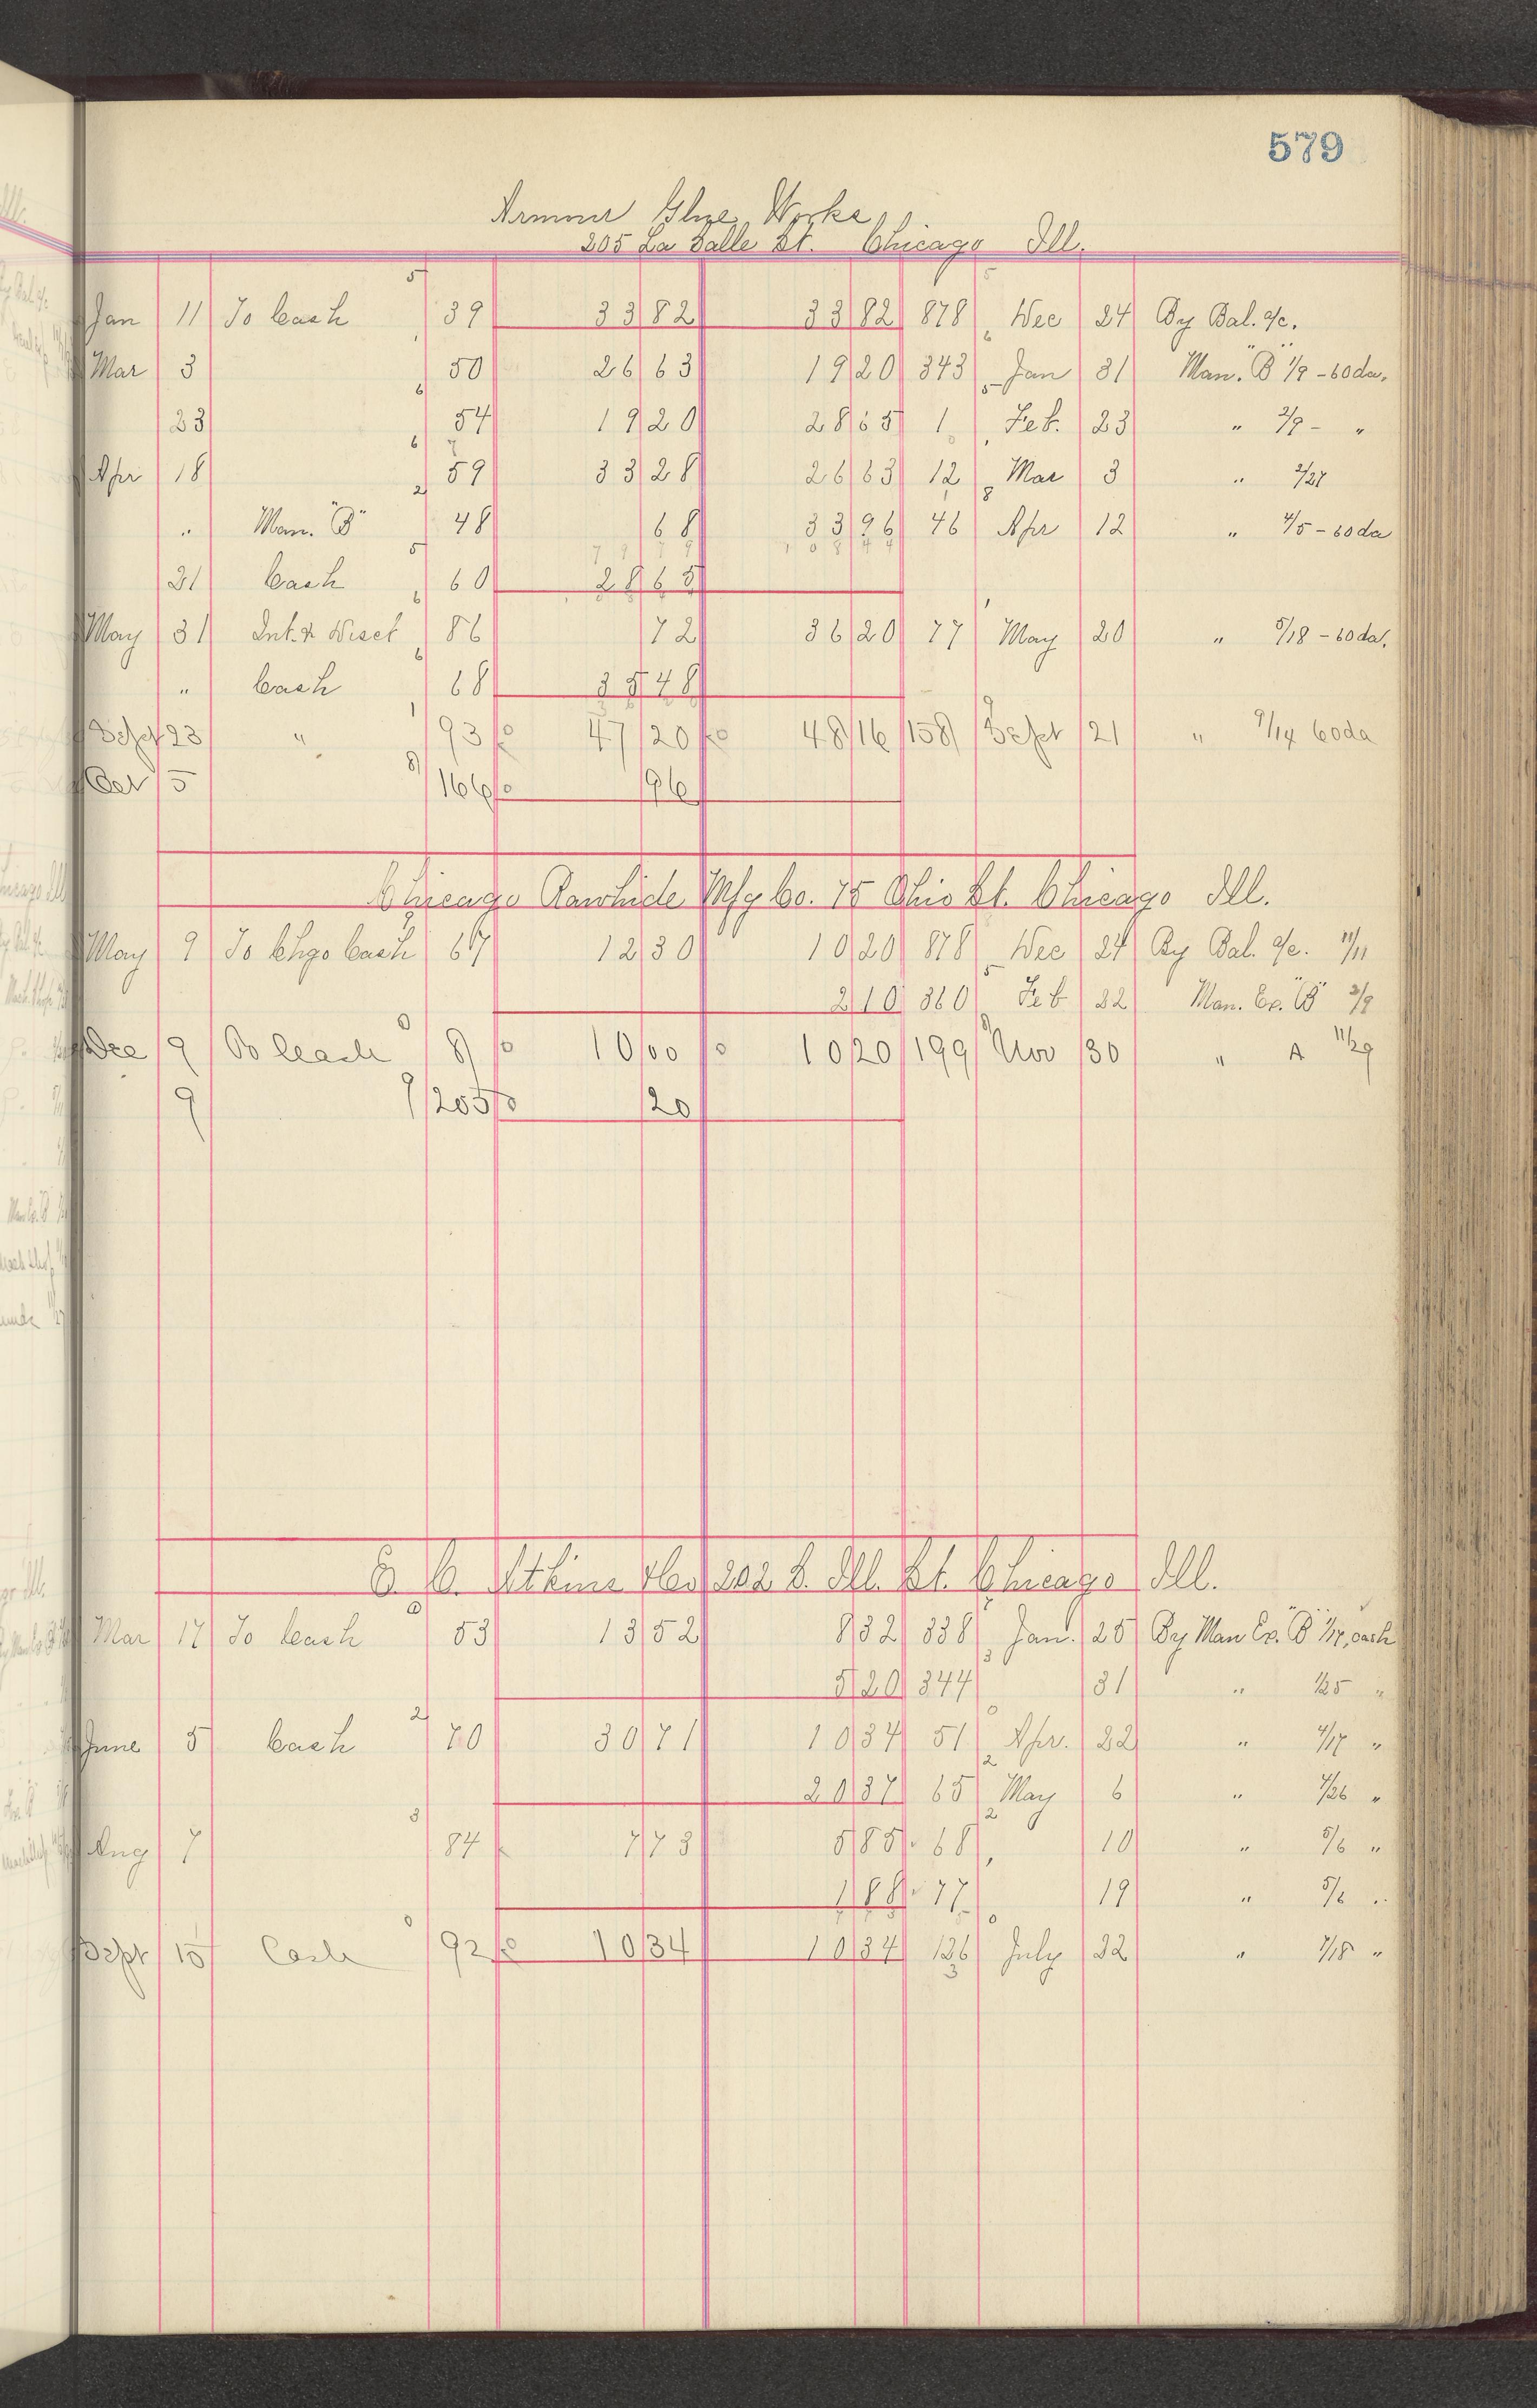 579
Armour Glue Works
205 La Salle St. Chicago Ill.
Jan 11 To Cash 39 33 82 33 82 878 Dec 24 By Bal. a/c.
Mar 3 50 26 63 19 20 343 Jan 31 Man. "B" 1/9 - 60 da.
23 54 19 20 28 65 1 Feb. 23 " 2/9 - "
Apr 18 59 33 28 26 63 12 Mar 3 " 2/27
" Man. "B" 48 68 33 96 46 Apr 12 " 4/5 - 60 da
21 Cash 60 28 65
May 31 Int. & Disct 86 72 36 20 77 May 20 " 5/18 - 60 da.
" Cash 68 35 48
Sept 23 " 93 47 20 48 16 158 Sept 21 " 9/14 60 da
Oct 5 166 96
Chicago Rawhide Mfg Co. 75 Ohio St. Chicago Ill.
May 9 To Chgo Cash 67 12 30 10 20 878 Dec 24 By Bal. a/c. 11/11
2 10 360 Feb 22 Man. Ex. "B" 2/9
Dec 9 To Cash 8 10 00 10 20 199 Nov 30 " A 11/29
9 205 20
E. C. Atkins & Co. Ill. St. Chicago Ill.
Mar 17 To Cash 53 13 52 8 32 338 Jan. 25 By Man Ex. "B" 1/17, cash
5 20 344 31 " 1/25 "
June 5 Cash 70 30 71 10 34 51 Apr. 22 " 4/17 "
20 37 65 May 6 " 4/26 "
Aug 7 84 7 73 5 85 68 10 " 5/6 "
1 88 77 19 " 5/6 "
Sept 15 Cash 92 10 34 10 34 126 July 22 " 7/18 "